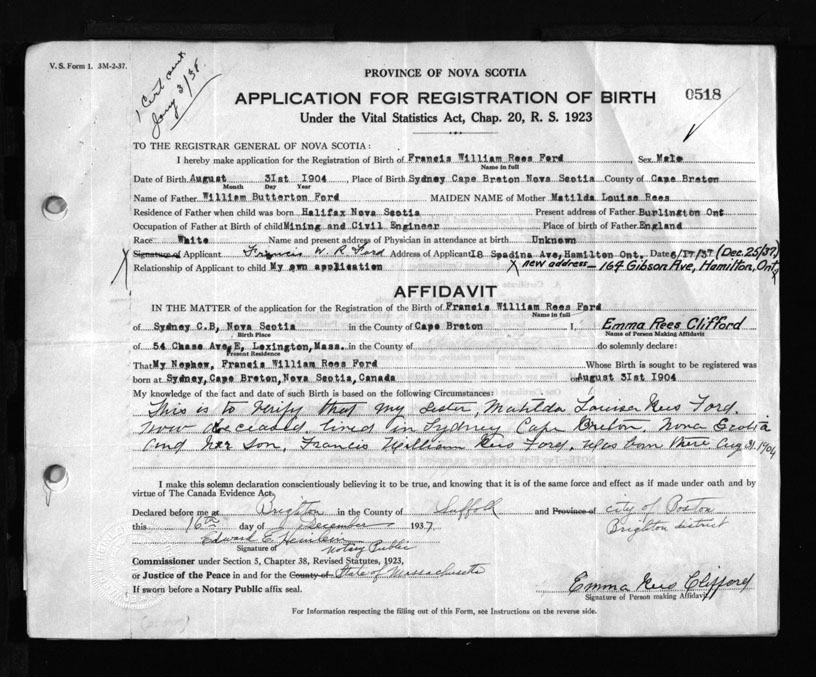 V. S. Form 1. 3M-2-37.
1 Cert sent
Jany 3/38.
PROVINCE OF NOVA SCOTIA
APPLICATION FOR REGISTRATION OF BIRTH
0518
Under the Vital Statistics Act, Chap. 20, R. S. 1923
TO THE REGISTRAR GENERAL OF NOVA SCOTIA:
I hereby make application for the Registration of Birth of Francis William Rees Ford Sex Male
Name in full
Date of Birth August 31st 1904, Place of Birth Sydney Cape Breton Nova Scotia County of Cape Breton
Month Day Year
Name of Father William Butterton Ford MAIDEN NAME of Mother Matilda Louise Rees
Residence of Father when child was born Halifax Nova Scotia Present address of Father Burlington Ont
Occupation of Father at Birth of child Mining and Civil Engineer Place of birth of Father England
Race White Name and present address of Physician in attendance at birth Unknown
Signature of Applicant Francis W. R. Ford Address of Applicant 18 Spadina Ave, Hamilton Ont. Date 6/17/37 (Dec. 25/37)
Relationship of Applicant to child My own application X new address - 164 Gibson Ave, Hamilton, Ont.
AFFIDAVIT
IN THE MATTER of the application for the Registration of the Birth of Francis William Rees Ford
Name in full
of Sydney C.B, Nova Scotia in the County of Cape Breton I, Emma Rees Clifford
Birth Place Name of Person Making Affidavit
of 54 Chase Ave, E, Lexington, Mass. in the County of do solemnly declare:
Present Residence
That My Nephew, Francis William Rees Ford Whose Birth is sought to be registered was
born at Sydney, Cape Breton, Nova Scotia, Canada on August 31st 1904
My knowledge of the fact and date of such Birth is based on the following Circumstances:
This is to verify that my sister, Matilda Louisa Rees Ford.
now deceased, lived in Sydney Cape Breton, Nova Scotia
and her son, Francis William Rees Ford, was born there Aug 31. 1904
I make this solemn declaration conscientiously believing it to be true, and knowing that it is of the same force and effect as if made under oath and by
virtue of The Canada Evidence Act,
Declared before me at Brighton in the County of Suffolk and Province of city of Boston
this 16th day of December 1937 Brighton district
Edward E.
Signature of Notary Public
Commissioner under Section 5, Chapter 38, Revised Statutes, 1923,
or Justice of the Peace in and for the County of State of Massachusetts
If sworn before a Notary Public affix seal.
Emma Rees Clifford
Signature of Person making Affidavit
For Information respecting the filling out of this Form, see Instructions on the reverse side.